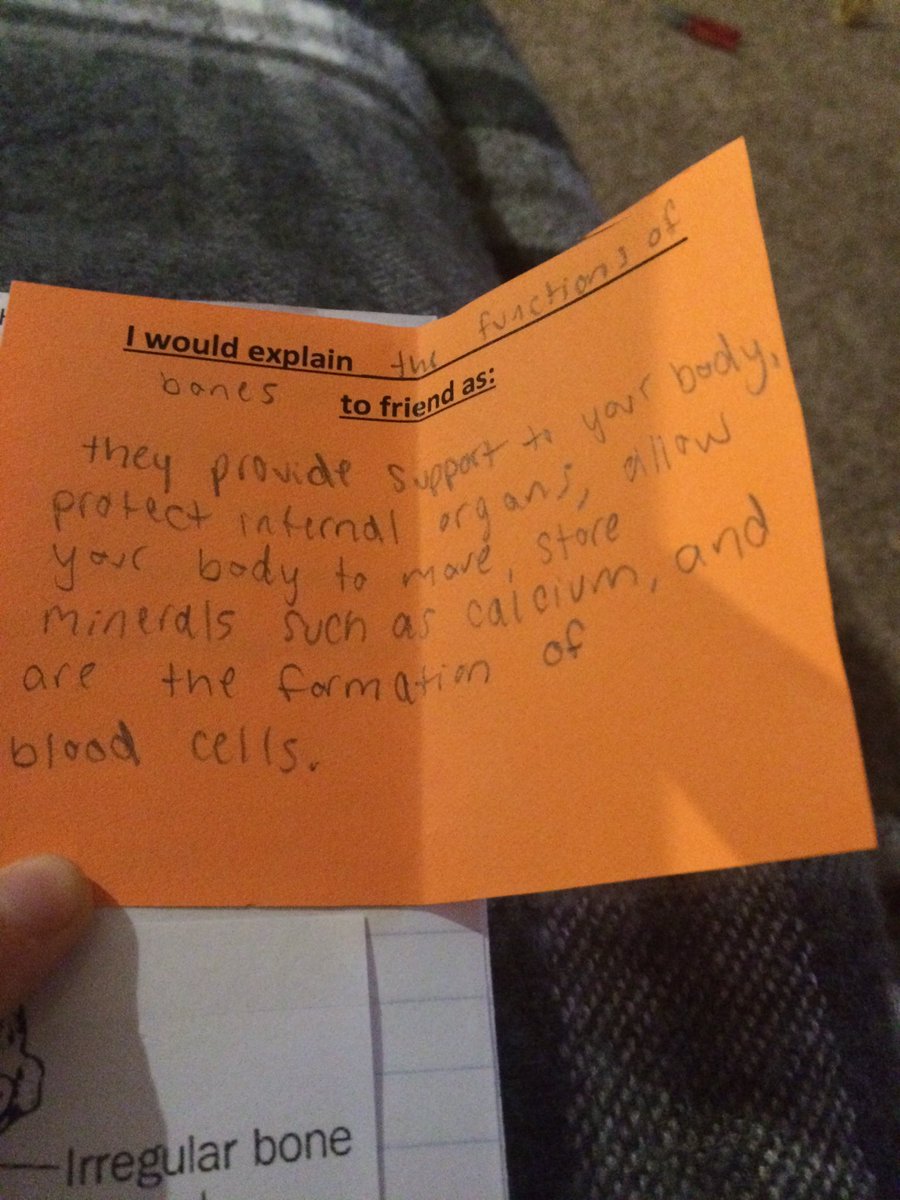 I would explain the functions of
bones to friend as:
they provide support to your body,
protect internal organs, allow
your body to move, store
minerals such as calcium, and
are the formation of
blood cells.
Irregular bone